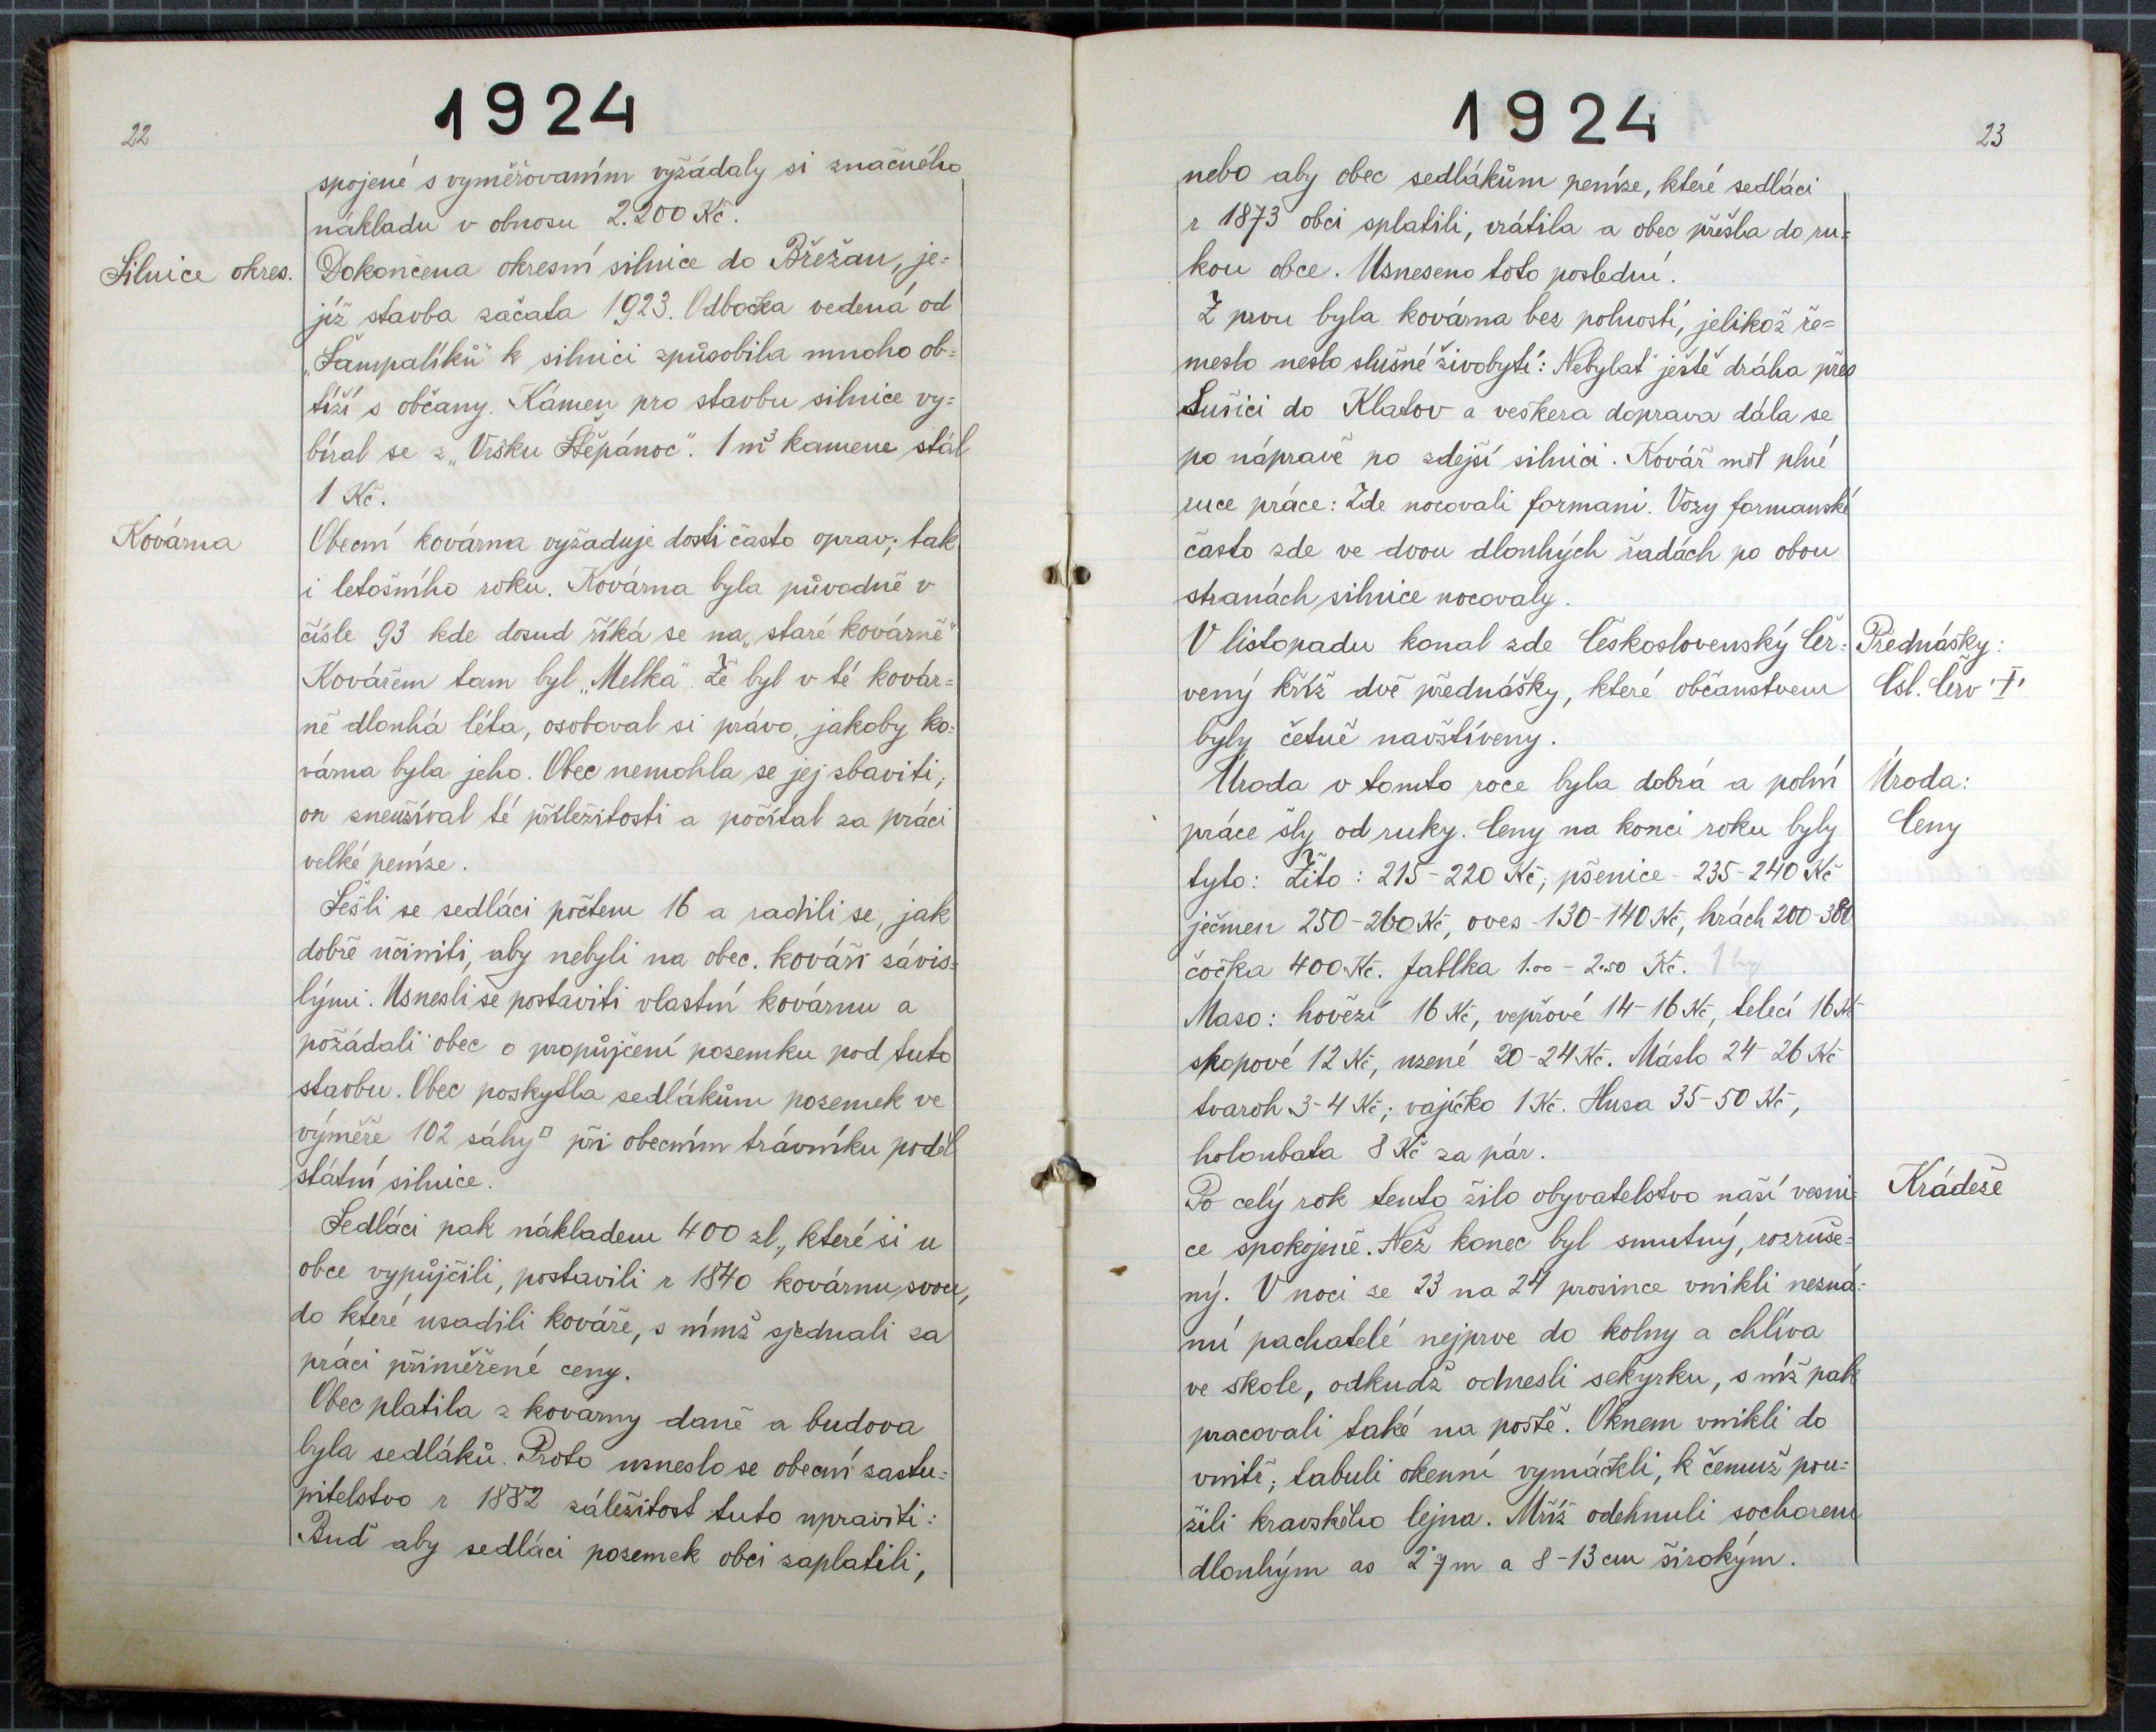 22
1924
spojené s vyměřovaním vyžádaly si značného
nákladu v obnosu 2.200 Kč.
Silnice okres.
Dokončena okresní silnice do Břežan, je=
jíž stavba začata 1923. Odbočka vedená od
„Šampalíků" k silnici způsobila mnoho ob=
tíží s občany. Kámen pro stavbu silnice vy=
bíral se z „Vršku Štěpánoc". 1 m³ kamene stál
1 Kč.
Kovárna
Obecní kovárna vyžaduje dosti často oprav; tak
i letošního roku. Kovárna byla původně v
čísle 93 kde dosud říká se na „staré kovárně"
Kovářem tam byl „Melka". Že byl v té kovár=
ně dlouhá léta, osoboval si právo, jakoby ko=
várna byla jeho. Obec nemohla se jej zbaviti;
on zneužíval té příležitosti a počítal za práci
velké peníze.
Sešli se sedláci počtem 16 a radili se, jak
dobře učiniti, aby nebyli na obec. kováři závis=
lými. Usnesli se postaviti vlastní kovárnu a
požádali obec o propůjčení pozemku pod tuto
stavbu. Obec poskytla sedlákům pozemek ve
výměře 102 sáhy□ při obecním trávníku podél
státní silnice.
Sedláci pak nákladem 400 zl., které si u
obce vypůjčili, postavili r 1840 kovárnu svou,
do které usadili kováře, s nímž sjednali za
práci přiměřené ceny.
Obec platila z kovárny daně a budova
byla sedláků. Proto usneslo se obecní zastu=
pitelstvo r 1882 záležitost tuto upraviti:
Buď aby sedláci pozemek obci zaplatili,
1924
23
nebo aby obec sedlákům peníze, které sedláci
r 1873 obci splatili, vrátila a obec přešla do ru=
kou obce. Usneseno toto poslední.
Z prvu byla kovárna bez polností, jelikož ře=
meslo neslo slušné živobytí: Nebylať ještě dráha přes
Sušici do Klatov a veškera doprava dála se
po nápravě po zdejší silnici. Kovář měl plné
ruce práce: Zde nocovali formani. Vozy formanské
často zde ve dvou dlouhých řadách po obou
stranách silnice nocovaly.
V listopadu konal zde Československý Čer=
vený kříž dvě přednášky, které občanstvem
byly četně navštíveny.
Přednášky:
Čsl. Červ. †
Úroda v tomto roce byla dobrá a polní
práce šly od ruky. Ceny na konci roku byly
Úroda:
Ceny
tyto: Žito: 215-220 Kč; pšenice - 235-240 Kč
ječmen 250-260 Kč, oves -130-140 Kč, hrách 200-380
čočka 400 Kč. Jablka 1.00 - 2.50 Kč. 1 kg
Maso: hovězí 16 Kč, vepřové 14-16 Kč, telecí 16 Kč
skopové 12 Kč, uzené 20-24 Kč. Máslo 24-26 Kč
tvaroh 3-4 Kč; vajíčko 1 Kč. Husa 35-50 Kč,
holoubata 8 Kč za pár.
Krádeže
Po celý rok tento žilo obyvatelstvo naší vesni=
ce spokojeně. Než konec byl smutný, rozruše=
ný. V noci ze 23 na 24 prosince vnikli nezná=
mí pachatelé nejprve do kolny a chlíva
ve škole, odkudž odnesli sekyrku, s níž pak
pracovali také na poště. Oknem vnikli do
vnitř; tabuli okenní vymáčkli, k čemuž pou=
žili kravského lejna. Mříž odehnuli sochorem
dlouhým as 2˙7 m a 8-13 cm širokým.